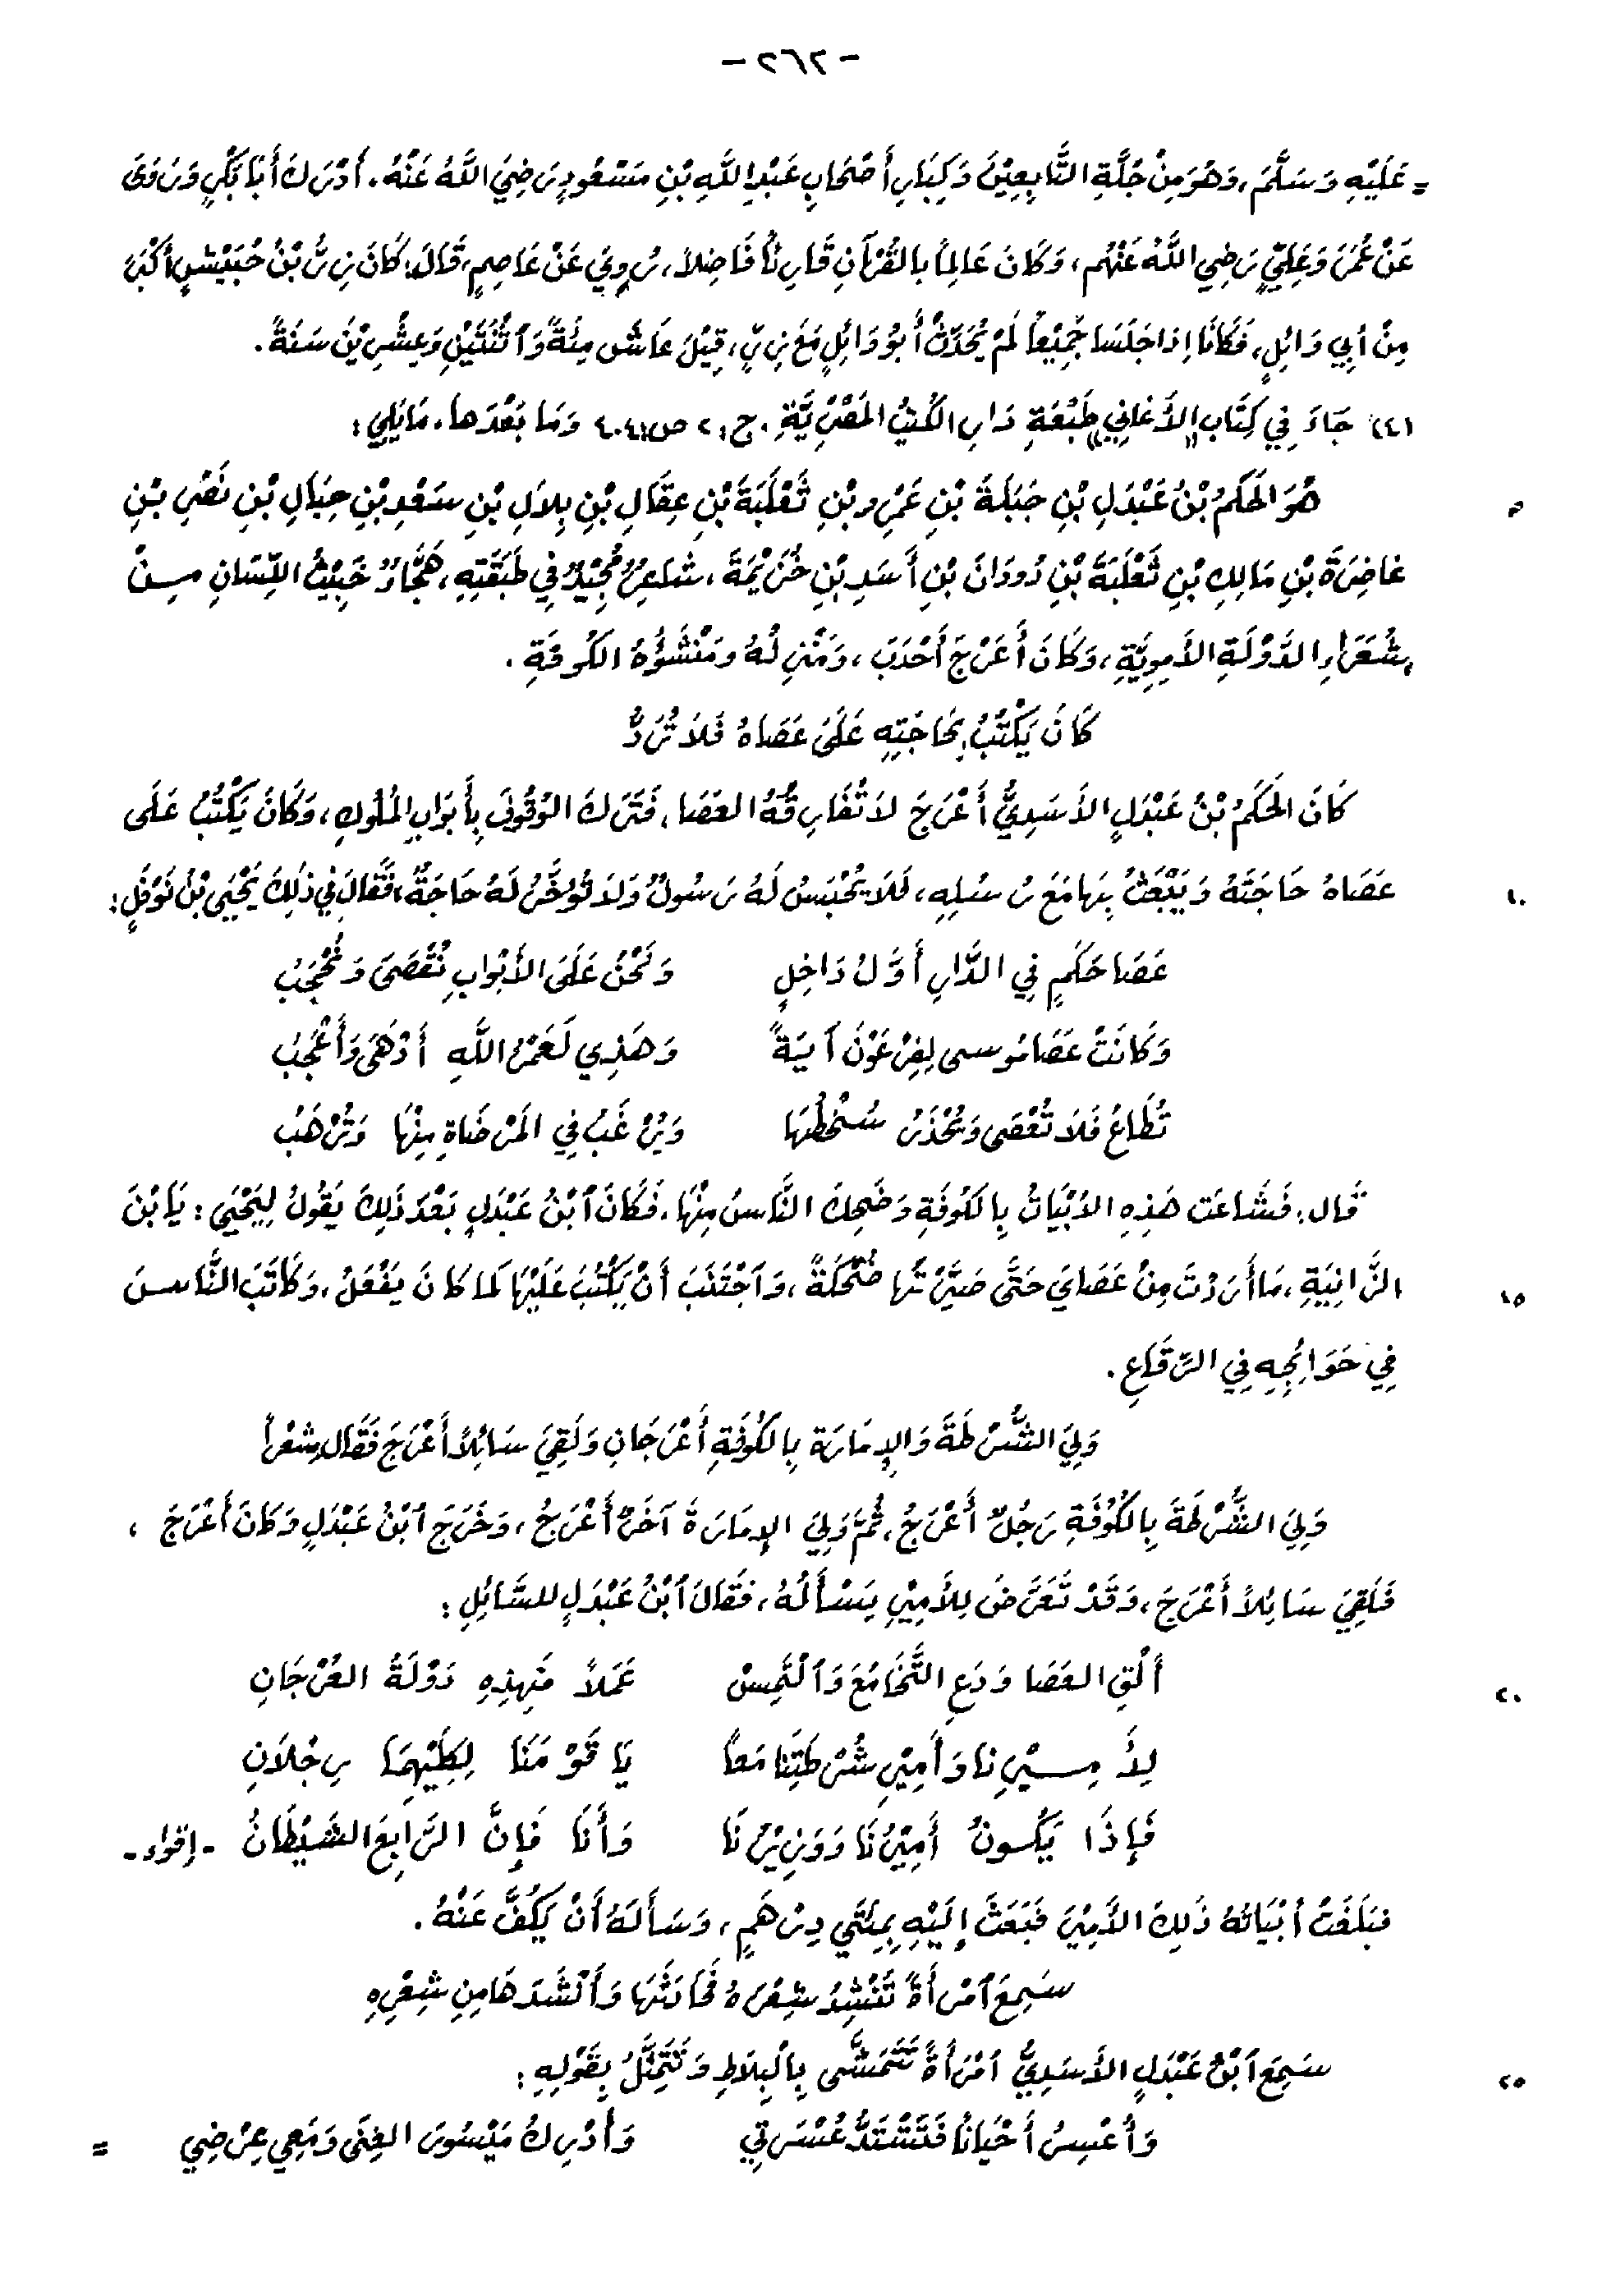 - ٢٦٢ -
= عَلَيْهِ وَسَلَّمَ، وَهُوَ مِنْ جُلَّةِ التَّابِعِيْنَ وَكِبَارِ أَصْحَابِ عَبْدِ اللَّهِ بْنِ مَسْعُودٍ رَضِيَ اللَّهُ عَنْهُ. أَدْرَكَ أَبَا بَكْرٍ وَرَوَى
عَنْ عُمَرَ وَعَلِيٍّ رَضِيَ اللَّهُ عَنْهُم، وَكَانَ عَالِماً بالقُرْآنِ قَارِئاً فَاضِلاً، رُوِيَ عَنْ عَاصِمٍ، قَالَ: كَانَ زِرُّ بْنُ حُبَيْشٍ أَكْبَرَ
مِنْ أَبِي وَائِلٍ، فَكَانَا إِذَا جَلَسَا جَمِيْعاً لَمْ يُحَدِّثْ أَبُو وَائِلٍ مَعَ زِرٍّ، قِيْلَ عَاشَ مِئَةً وَٱثْنَتَيْنِ وَعِشْرِيْنَ سَنَةً.
(٤) جَاءَ فِي كِتَابِ «الأَغَانِي» طَبْعَةِ دَارِ الكُتُبِ المَصْرِيَّةِ. ج: ٢ ص: ٤٠٤ وَمَا بَعْدَهَا. مَايَلِي:
هُوَ الحَكَمُ بْنُ عَبْدَلِ بْنِ جَبَلَةَ بْنِ عَمْرِو بْنِ ثَعْلَبَةَ بْنِ عِقَالِ بْنِ بِلاَلِ بْنِ سَعْدِ بْنِ حِبَالِ بْنِ نَصْرِ بْنِ
٥
غَاضِرَةَ بْنِ مَالِكِ بْنِ ثَعْلَبَةَ بْنِ دُودَانَ بْنِ أَسَدِ بْنِ خُزَيْمَةَ، شَاعِرٌ مُجِيْدٌ فِي طَبَقَتِهِ، هَجَّاءٌ خَبِيْثُ اللِّسَانِ مِنْ
شُعَرَاءِ الدَّوْلَةِ الأَمَوِيَّةِ، وَكَانَ أَعْرَجَ أَحْدَبَ، وَمَنْزِلُهُ ومَنْشَؤُهُ الكُوفَةِ.
كَانَ يَكْتُبُ بِحَاجَتِهِ عَلَى عَصَاهُ فَلاَ تُرَدُّ
كَانَ الحَكَمُ بْنُ عَبْدَلٍ الأَسَدِيُّ أَعْرَجَ لاَ تُفَارِقُهُ العَصَا، فَتَرَكَ الوُقُوفَ بِأَبْوَابِ المُلُوكِ، وَكَانَ يَكْتُبُ عَلَى
عَصَاهُ حَاجَتَهُ وَيَبْعَثُ بِهَا مَعَ رُسُلِهِ، فَلاَ يُحْبَسُ لَهُ رَسُولٌ وَلاَ تُؤَخَّرُ لَهُ حَاجَةٌ، فَقَالَ فِي ذَلِكَ يَحْيَى بْنُ نَوْفَلٍ:
١٠
عَصَا حَكَمٍ فِي الدَّارِ أَوَّلُ دَاخِلٍ وَنَحْنُ عَلَى الأَبْوَابِ نُقْصَى وَنُحْجَبُ
وَكَانَتْ عَصَا مُوسى لِفِرْعَوْنَ آيَةً وَهَذِي لَعَمْرُ اللَّهِ أَدْهَى وَأَعْجَبُ
تُطَاعُ فَلاَ تُعْصَى وَيُحْذَرُ سُخْطُهَا وَيُرْغَبُ فِي المَرْضَاةِ مِنْهَا وَتُرْهَبُ
قَال: فَشَاعَت هَذِهِ الأَبْيَاتُ بِالكُوفَةِ وَضَحِكَ النَّاسُ مِنْهَا، فَكَانَ ٱبْنُ عَبْدَلٍ بَعْدَ ذَلِكَ يَقُولُ لِيَحْيَى: يَا بْنَ
الزَّانِيَةِ، مَا أَرَدْتَ مِنْ عَصَايَ حَتَّى صَيَّرْتَهَا ضُحْكَةً، وَٱجْتَنَبَ أَنْ يَكْتُبَ عَلَيْهَا كَمَا كَانَ يَفْعَلُ، وَكَاتَبَ النَّاسَ
١٥
فِي حَوَائِجِهِ فِي الرِّقَاعِ.
وَلِيَ الشُّرْطَةَ وَالإِمَارَةَ بِالكُوفَةِ أَعْرَجَانِ وَلَقِيَ سَائِلاً أَعْرَجَ فَقَالَ شِعْراً
وَلِيَ الشُّرْطَةَ بِالكُوفَةِ رَجُلٌ أَعْرَجُ، ثُمَّ وَلِيَ الإِمَارَةَ آخَرُ أَعْرَجُ، وَخَرَجَ ٱبْنُ عَبْدَلٍ وَكَانَ أَعْرَجَ،
فَلَقِيَ سَائِلاً أَعْرَجَ، وَقَدْ تَعَرَّضَ لِلأَمِيْرِ يَسْأَلُهُ، فَقَالَ ٱبْنُ عَبْدَلٍ للسَّائِلِ:
أَلْقِ العَصَا وَدَعِ التَّخَامُعَ وَٱلْتَمِسْ عَمَلاً فَهِذِهِ دَوْلَةُ العُرْجَانِ
٢٠
لِأَمِيْرِنَا وَأَمِيْرِ شُرْطَتِنَا مَعاً يَا قَوْمَنَا لِكِلَيْهِمَا رِجْلاَنِ
فَإِذَا يَكُونُ أَمِيْرُنَا وَوَزِيْرُنَا وَأَنَا فَإِنَّ الرَّابِعَ الشَّيْطَانُ -إقواء-
فبَلَغَتْ أَبْيَاتُهُ ذَلِكَ الأَمِيْرَ فَبَعَثَ إِلَيْهِ بِمِئَتَي دِرْهَمٍ، وَسَأَلَهُ أَنْ يَكُفَّ عَنْهُ.
سَمِعَ ٱمْرَأَةً تَنْشِدُ شِعْرَهُ فَحَادَثَهَا وَأَنْشَدَهَا مِنِ شِعْرِهِ
سَمِعَ ٱبْنُ عَبْدَلٍ الأَسَدِيُّ ٱمْرَأَةً تَتَمَشَّى بِالْبِلاَطِ وَتَتَمَثَّلُ بِقَوْلِهِ:
٢٥
وَأُعْسِرُ أَحْيَاناً فَتَشْتَدُّ عُسْرَتِي وَأُدْرِكُ مَيْسُورَ الغِنَى وَمَعِي عِرْضِي =